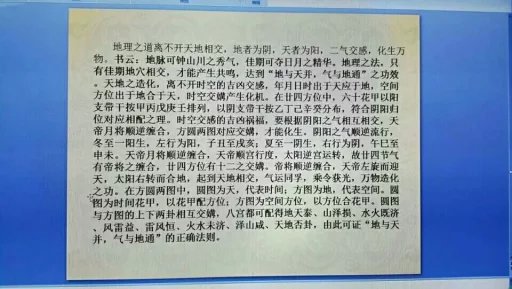 地理之道离不开天地相交，地者为阴，天者为阳，二气交感，化生万
物。书云：地脉可钟山川之秀气，佳期可夺日月之精华。地理之法，只
有佳期地穴相交，才能产生共鸣，达到“地与天并，气与地通”之功效。
天地之造化，离不开时空的吉凶交感，年月日时出于天应于地，空间
方位出于地合于天，时空交媾产生化机。在廿四方位中，六十花甲以阳
支带干按甲丙戊庚壬排列，以阴支带干按乙丁己辛癸分布，符合阴阳归
位对应相配之理。时空交感的吉凶祸福，要根据阴阳之气相互相交，天
帝月将顺逆缠合，方圆两图对应交媾，才能化生。阴阳之气顺逆流行，
冬至一阳生，左行为阳，子丑至戌亥；夏至一阴生，右行为阴，午巳至
申未。天帝月将顺逆缠合，天帝顺宫行度，太阳逆宫运转，故廿四节气
有帝将之缠合，廿四方位有十二之交媾。帝将顺逆缠合，天帝左旋而迎
天，太阳右转而合地，起到天地相交，气运同孚，乘令获光，万物造化
之功。在方圆两图中，圆图为天，代表时间；方图为地，代表空间。圆
图为时间花甲，以花甲配方位；方图为空间方位，以方位合花甲。圆图
与方图的上下两卦相互交媾，八宫都可配得地天泰、山泽损、水火既济
、风雷益、雷风恒、火水未济、泽山咸、天地否卦，由此可证“地与天
并，气与地通”的正确法则。